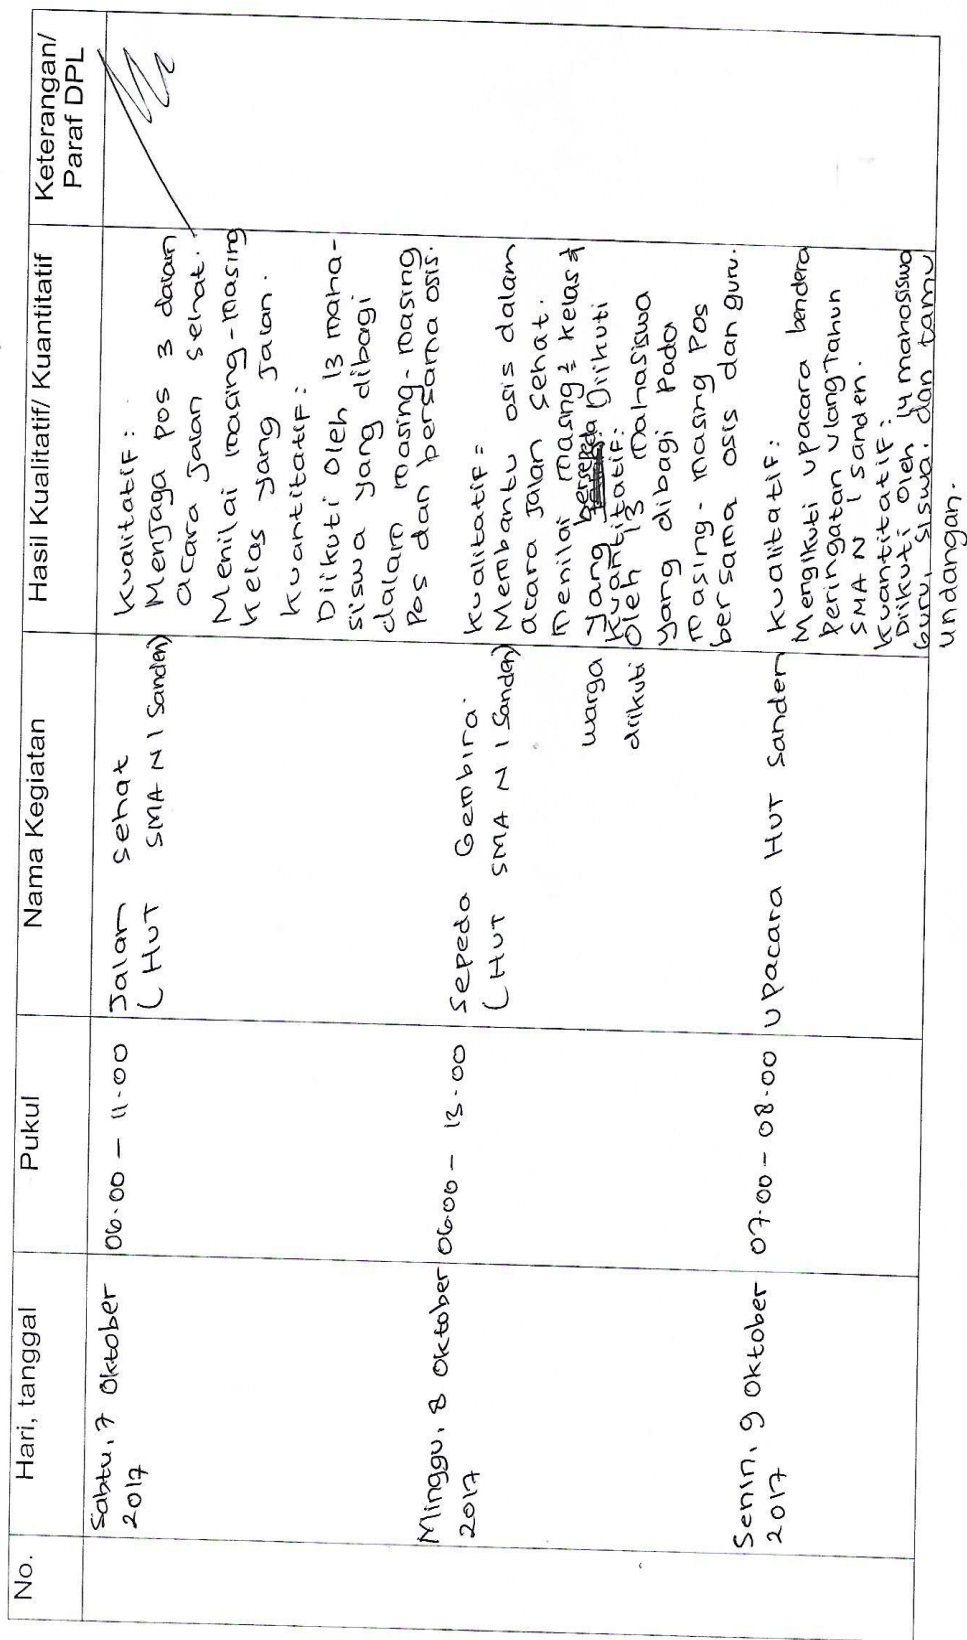 No.
Hari, tanggal
Pukul
Nama Kegiatan
Hasil Kualitatif/ Kuantitatif
Keterangan/
Paraf DPL
Sabtu, 7 Oktober
2017
06.00 - 11.00
Jalan sehat
(HUT SMA N 1 Sanden)
Kualitatif:
Menjaga Pos 3 dalam
acara Jalan Sehat.
Menilai masing-masing
kelas yang Jalan.
Kuantitatif:
Diikuti oleh 13 maha-
siswa yang dibagi
dalam masing-masing
Pos dan bersama osis.
Minggu, 8 Oktober
2017
06.00 - 13.00
Sepeda Gembira.
(HUT SMA N 1 Sanden)
Kualitatif =
Membantu osis dalam
acara Jalan Sehat.
Menilai masing2 kelas
yang bersepeda Diikuti warga
Kuantitatif:
diikuti Oleh 13 Mahasiswa
yang dibagi Pada
masing-masing Pos
bersama osis dan guru.
Senin, 9 Oktober
2017
07.00 - 08.00
Upacara HUT Sanden
Kualitatif:
Mengikuti upacara bendera
Peringatan ulang Tahun
SMA N 1 Sanden.
Kuantitatif:
Diikuti oleh 14 mahasiswa
Guru, siswa. dan tamu
undangan.